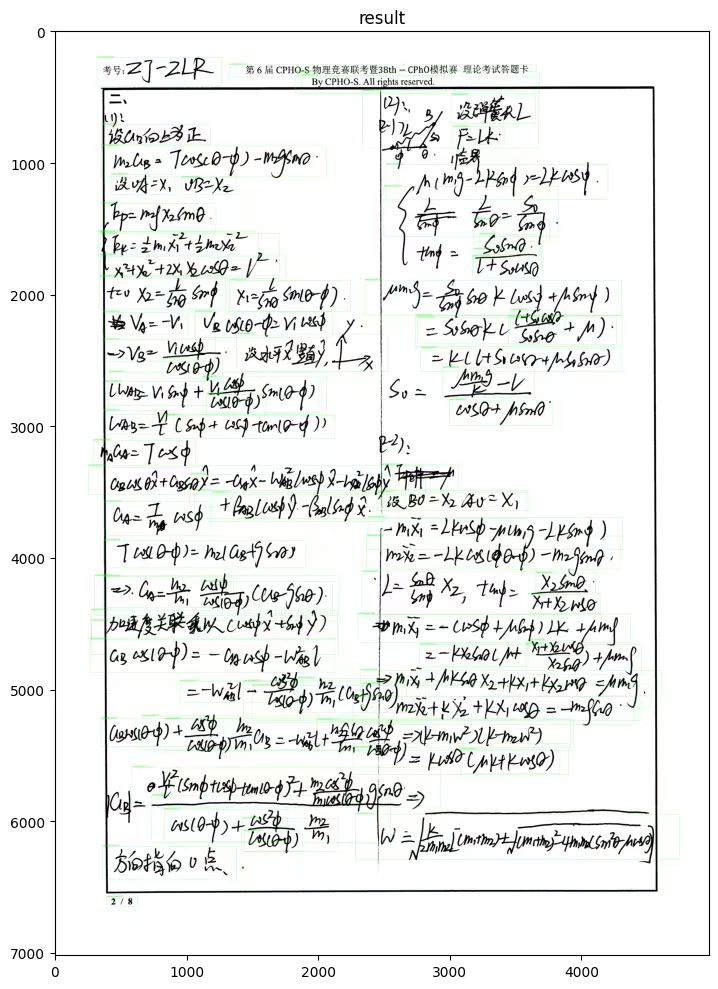 result
考号: ZJ-ZLR
第 6 届 CPHO-S 物理竞赛联考暨38th – CPhO模拟赛 理论考试答题卡
By CPHO-S. All rights reserved.
二、
(1):
设a_B向上为正
m₂a_B = Tcos(θ-φ) - m₂gsinθ.
设OA=x₁ OB=x₂
E_p = m₂gx₂sinθ.
E_k = ½m₁ẋ₁² + ½m₂ẋ₂²
x₁²+x₂²+2x₁x₂cosθ = l².
t=0 x₂ = l/sinθ sinφ x₁ = l/sinθ sin(θ-φ).
V_A = -V₁ V_B cos(θ-φ) = V₁cosφ
→ V_B = V₁cosφ/cos(θ-φ). 设水平x̂ 竖直ŷ,
Y
X
lω_AB = V₁sinφ + V₁cosφ/cos(θ-φ) sin(θ-φ)
ω_AB = V₁/l (sinφ + cosφ tan(θ-φ))
m₁a_A = Tcosφ
a_Bcosθx̂ + a_Bsinθŷ = -a_Ax̂ - ω_AB²lcosφx̂ - ω_AB²lsinφŷ
+ β_AB lcosφŷ - β_AB lsinφx̂.
a_A = T/m₁ cosφ
Tcos(θ-φ) = m₂(a_B+gsinθ)
⇒ a_A = m₂/m₁ cosφ/cos(θ-φ) (a_B-gsinθ).
加速度关联乘以 (cosφx̂+sinφŷ)
a_B cos(θ-φ) = -a_Acosφ - ω_AB²l
= -ω_AB²l - cos²φ/cos(θ-φ) m₂/m₁ (a_B+gsinθ)
a_Bcos(θ-φ) + cos²φ/cos(θ-φ) m₂/m₁ a_B = -ω_AB²l + m₂gsinθ/m₁ cos²φ/cos(θ-φ)
|a_B| = (V₁²/l (sinφ+cosφ tan(θ-φ))² + m₂cos²φ/m₁cos(θ-φ) gsinθ) / (cos(θ-φ) + cos²φ/cos(θ-φ) m₂/m₁)
方向指向O点、
(2):
(2-1)
B
φ θ
设弹簧长L
F=Lk.
临界
μ(m₁g-Lksinφ) = Lkcosφ.
L/sinθ = S₀/sinφ.
tanφ = S₀sinθ/(l+S₀cosθ)
μm₁g = S₀/sinφ sinθ k (cosφ+μsinφ)
= S₀sinθ k ((l+S₀cosθ)/S₀sinθ + μ).
= k(l+S₀cosθ+μS₀sinθ)
S₀ = (μm₁g/k - l)/(cosθ+μsinθ)
(2-2):
设BO=x₂ AO=x₁
-m₁ẍ₁ = Lkcosφ-μ(m₁g-Lksinφ)
m₂ẍ₂ = -Lkcos(θ-φ)-m₂gsinθ.
L = sinθ/sinφ x₂, tanφ = x₂sinθ/(x₁+x₂cosθ)
⇒ m₁ẍ₁ = -(cosφ+μsinφ)Lk+μm₁g
= -kx₂sinθ(μ+(x₁+x₂cosθ)/(x₂sinθ))+μm₁g
⇒ m₁ẍ₁+μksinθx₂+kx₁+kx₂cosθ = μm₁g.
m₂ẍ₂+kx₂+kx₁cosθ = -m₂gsinθ.
⇒ (k-m₁ω²)(k-m₂ω²)
= kcosθ(μk+kcosθ)
⇒
ω = √(k/2m₁m₂ [(m₁+m₂)±√((m₁+m₂)²-4m₁m₂(sin²θ-μcosθ))])
2 / 8
0
1000
2000
3000
4000
5000
6000
7000
0 1000 2000 3000 4000